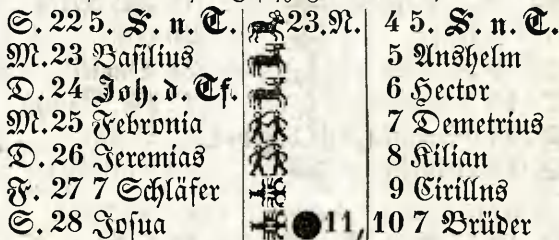 S. 22 5. S. n. T. 23. N. 4 5. S. n. T.
M. 23 Basilius 5 Anshelm
D. 24 Joh. d. Tf. 6 Hector
M. 25 Febronia 7 Demetrius
D. 26 Jeremias 8 Kilian
F. 27 7 Schläfer 9 Cirillns
S. 28 Josua 11, 10 7 Brüder